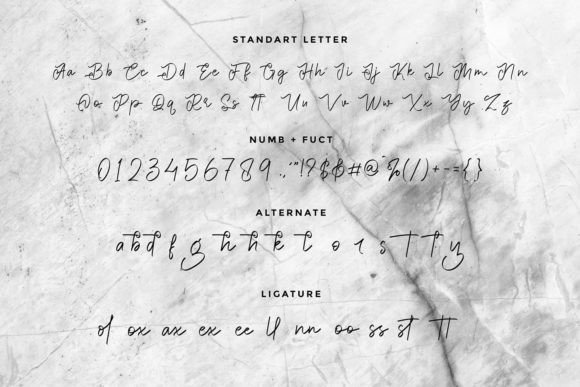 STANDART LETTER
Aa Bb Cc Dd Ee Ff Gg Hh Ii Jj Kk Ll Mm Nn
Oo Pp Qq Rr Ss Tt Uu Vv Ww Xx Yy Zz
NUMB + FUCT
0123456789.,'"!?$$#@~%(/)+-={}
ALTERNATE
a b d f g h h k t o r s t t y
LIGATURE
of ox ax ex ee ll nn oo ss st tt